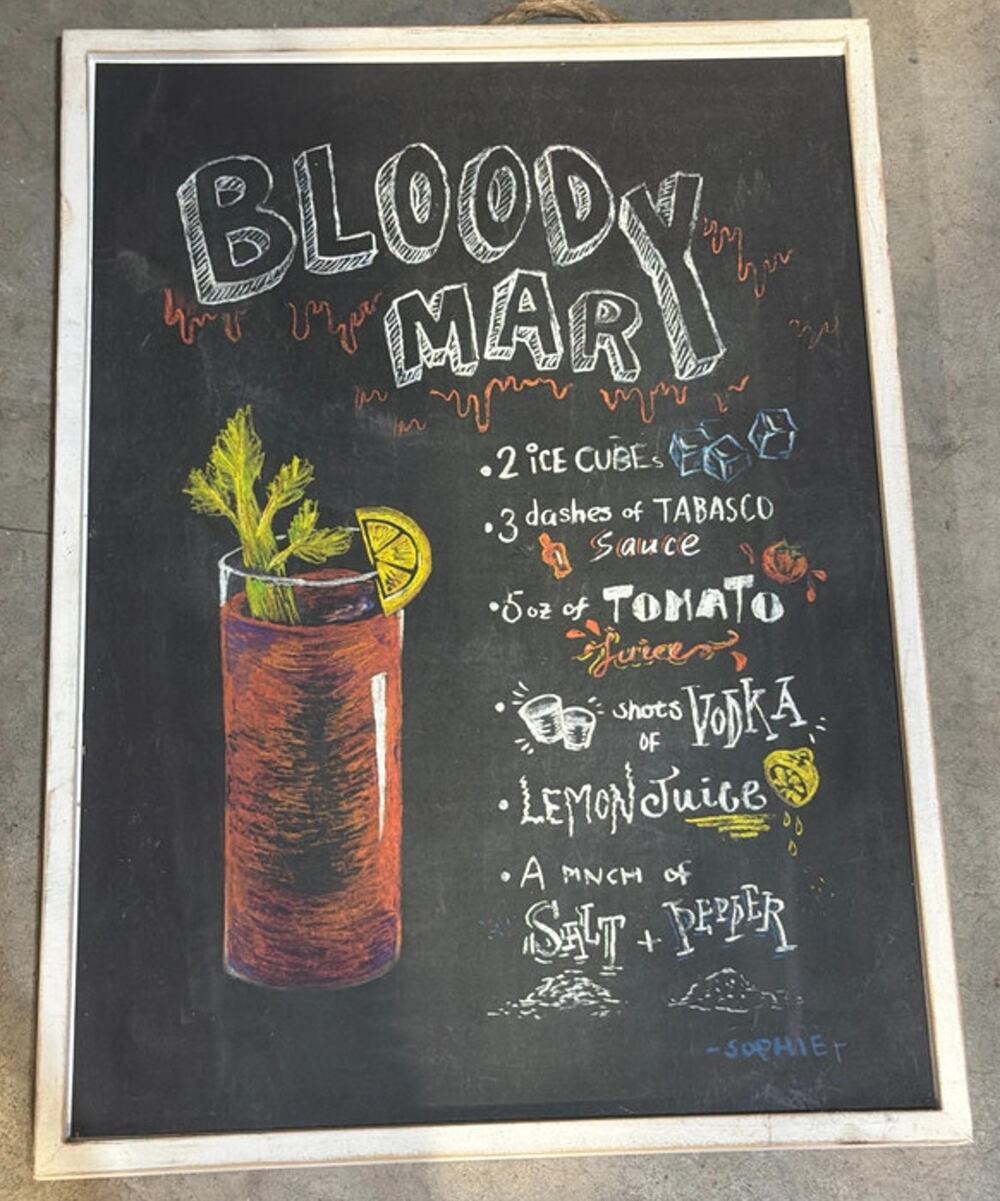 BLOODY
MARY
• 2 ICE CUBEs
• 3 dashes of TABASCO
Sauce
• 5 oz of TOMATO
Juice
• shots VODKA
OF
• LEMON Juice
• A PINCH of
SALT + PEPPER
- SOPHIE